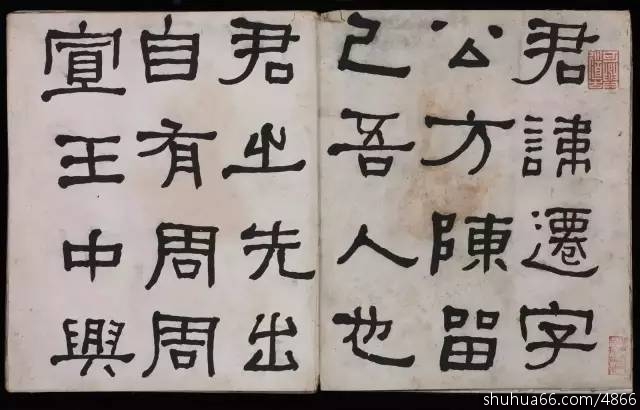 君諱遷字
公方陳留
己吾人也
君之先出
自有周周
宣王中興
shuhua66.com/4866